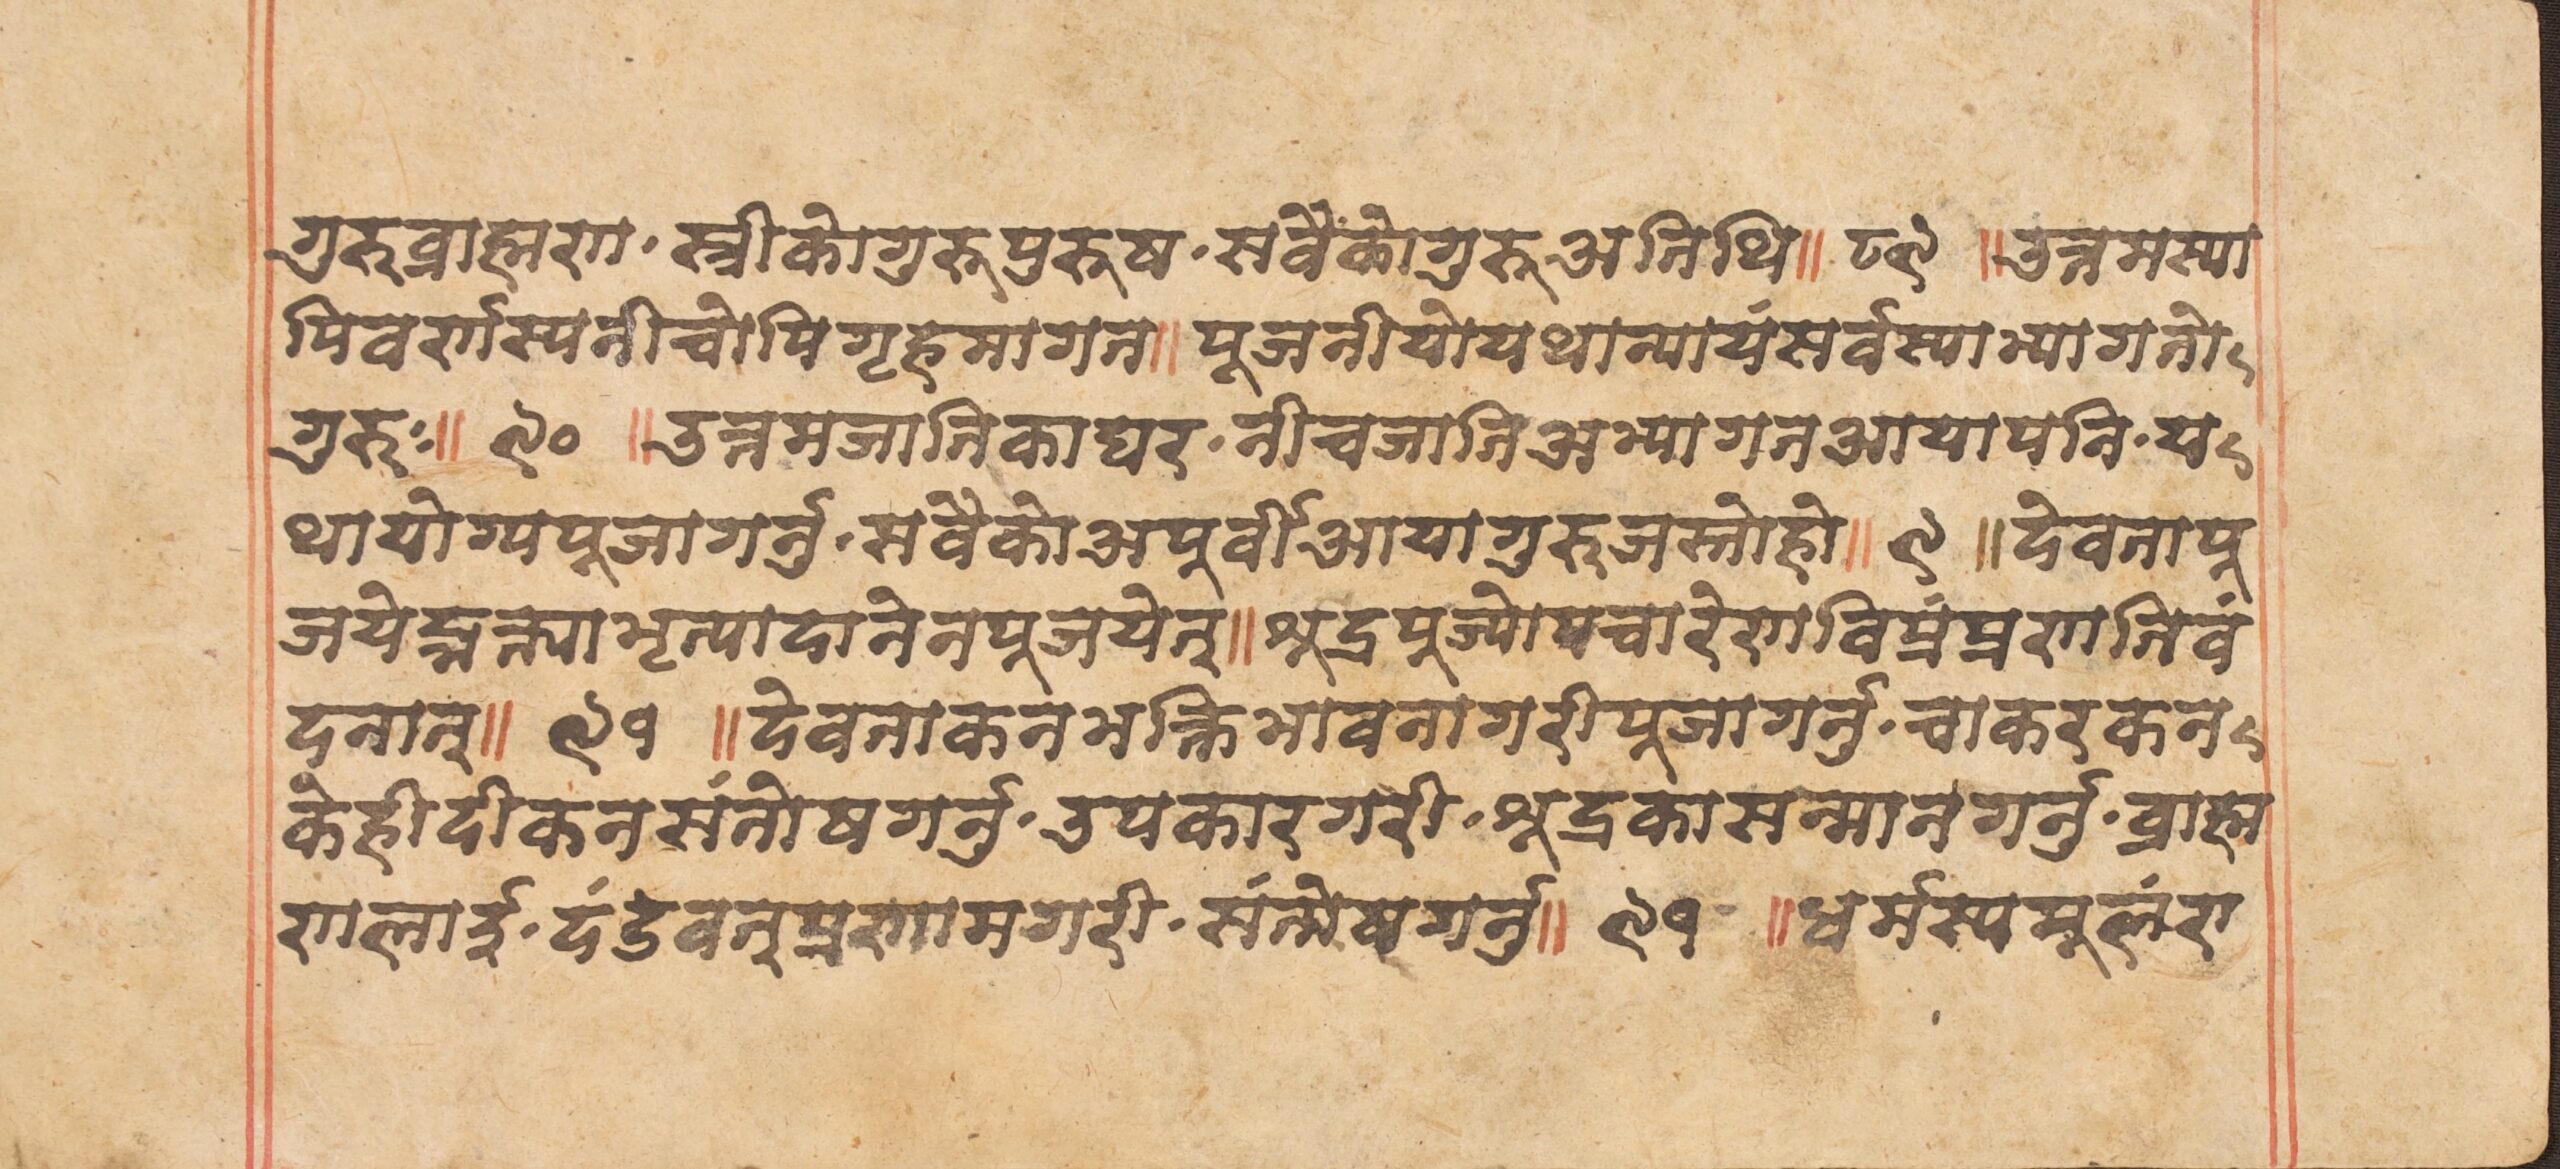 गुरुव्राह्मण · स्त्रीकोगुरुपुरुष · सवैकोगुरुअतिथि॥ ८९ ॥उत्तमस्या
पिवर्णस्यनीचोपिगृहमागत॥ पूजनीयोयथान्यायंसर्वस्याभ्यागतो
गुरुः॥ ९० ॥उत्तमजातिकाघर · नीचजातिअभ्यागतआयापनि · य
थायोग्यपूजागर्नु · सवैकोअपूर्वीआयागुरुजस्तोहो॥ ९ ॥देवतापू
जयेद्भक्त्याभृत्यादानेनपूजयेत्॥ श्रूद्रपूज्योपचारेणविप्रंप्रणतिवं
दनात्॥ ९१ ॥देवताकनभक्तिभावनागरीपूजागर्नु · चाकरकन
केहीदीकनसंतोषगर्नु · उपकारगरी · श्रूद्रकासन्मानगर्नु · व्राह्म
णलाई · दंडवत्प्रणामगरी · संन्तोषगर्नु॥ ९१ ॥धर्मस्यमूलंरा